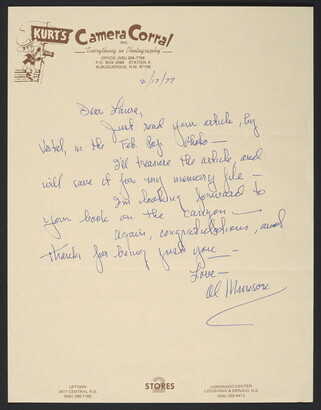 KURT'S Camera Corral
INC.
Everything in Photography
OFFICE (505) 266-7766
P.O. BOX 4069 STATION A
ALBUQUERQUE, N.M. 87106
2/17/77
Dear Laura,
Just read your article, by
in the Feb. Pop. Photo —
I'll treasure the article, and
will save it for my memory file —
I'm looking forward to
your book on the canyon —
Again, congratulations, and
thanks for being just you —
Love —
Al
UPTOWN
N.E.
2
STORES
CORONADO CENTER
LOUISIANA & MENAUL N.E.